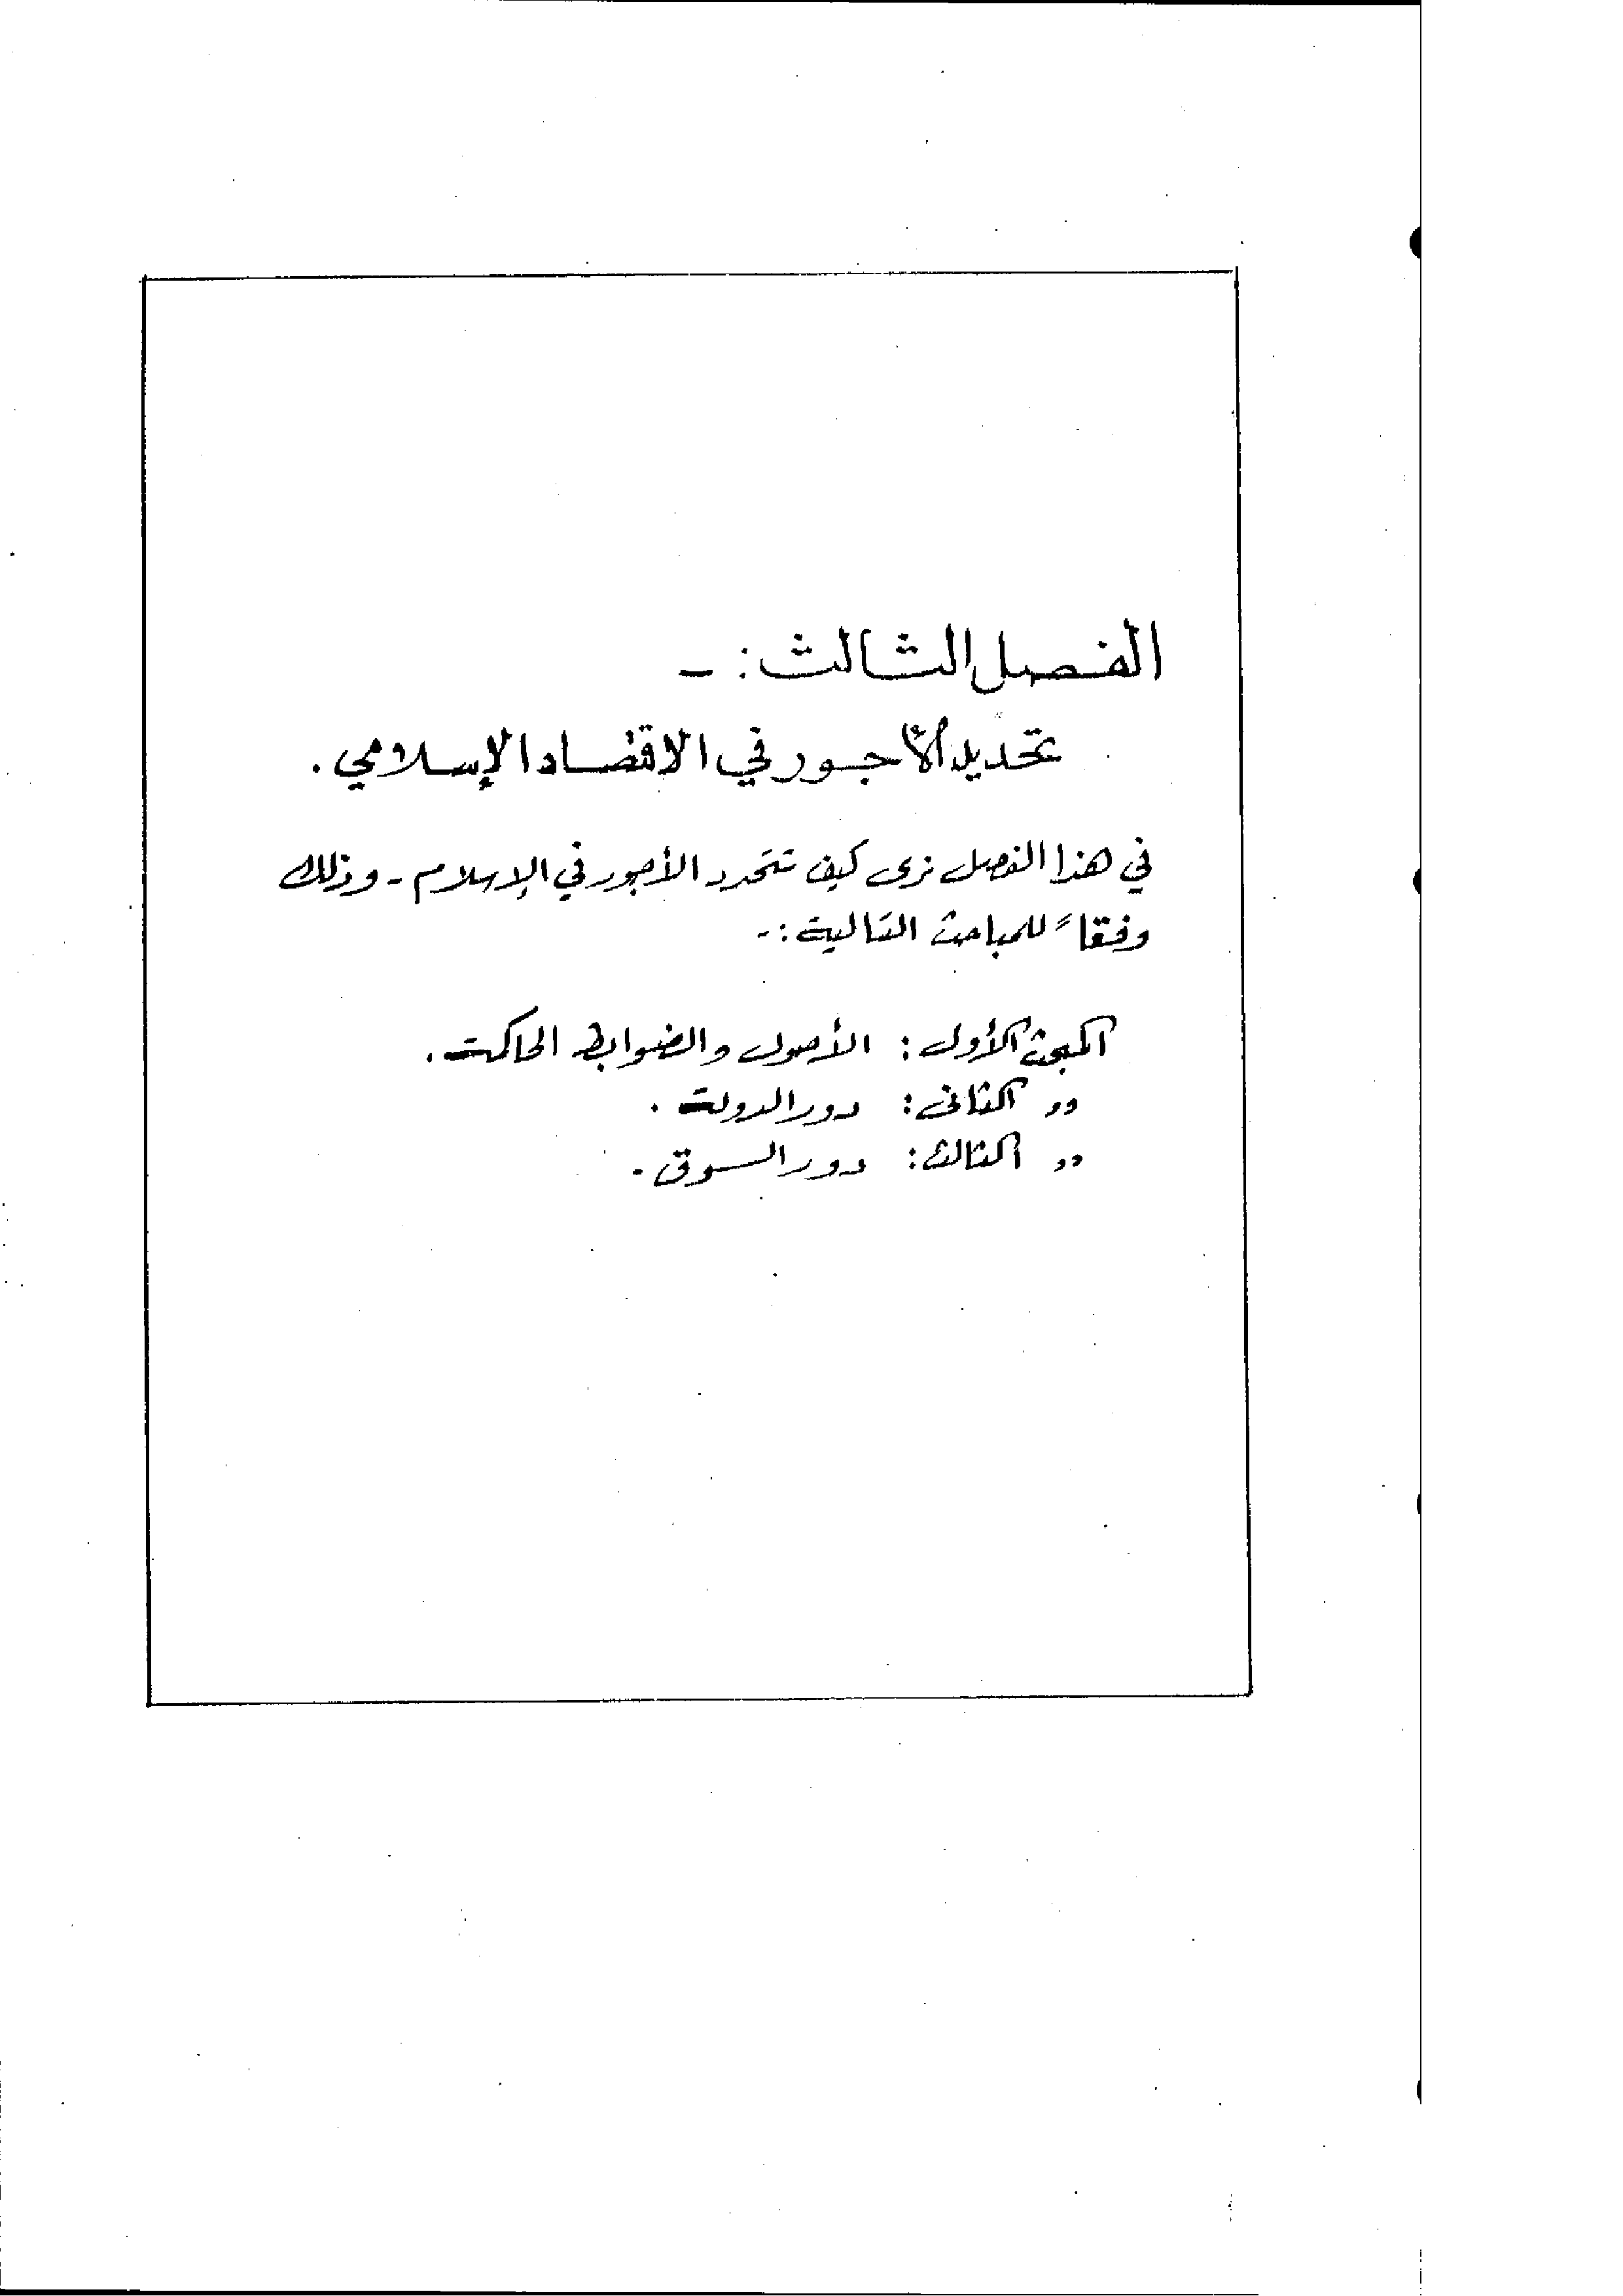 الفصل الثالث : -
تحديد الأجور في الاقتصاد الإسلامي .
في هذا الفصل نرى كيف تتحدد الأجور في الإسلام - وذلك
وفقاً للمباحث التالية :-
المبحث الأول : الأصول والضوابط الحاكمة .
,, الثاني : دور الدولة .
,, الثالث : دور السوق .